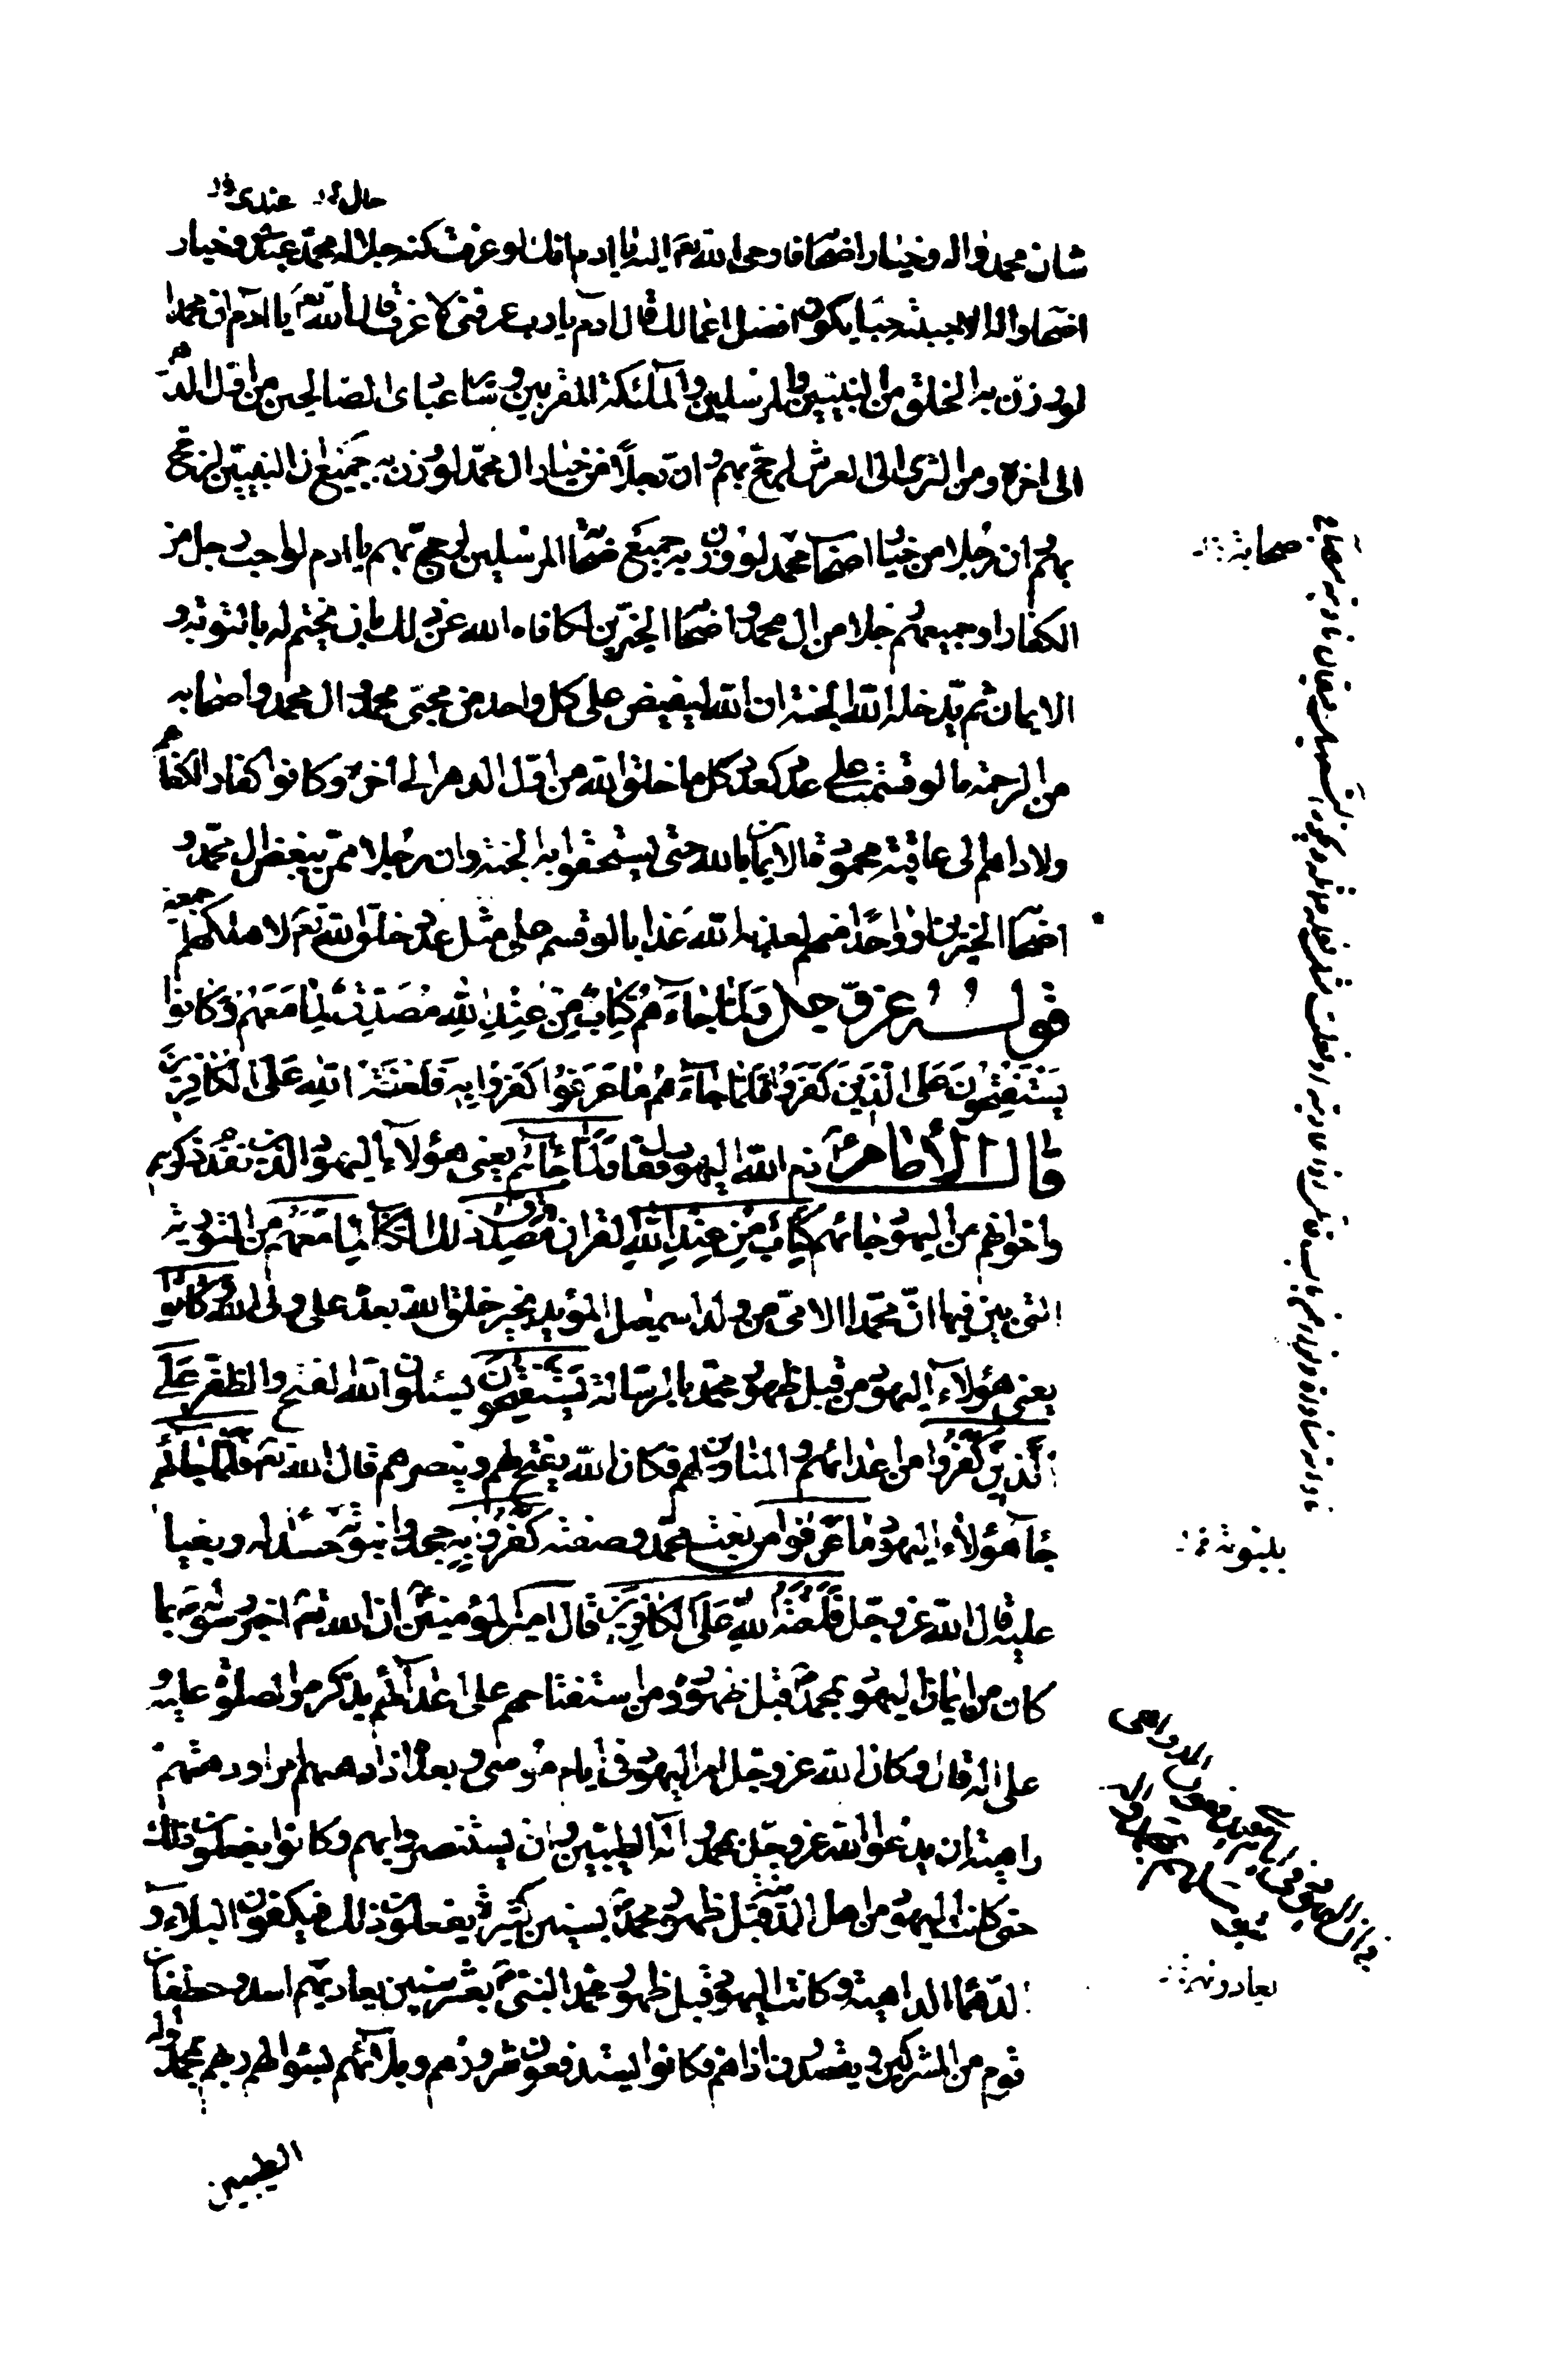 حال خ عندى خ
شان محمد واله وخيار اصحابه فاوحى الله تع اليه يا ادم انك لو عرفت كنه جلالة محمد عندى وخيار
اصحابه واله لاحببته حبا يكون افضل اعمالك قال ادم يا رب عرفنى لاعرف قال الله تع يا ادم ان محمدا
لو وزن به الخلق من النبيين والمرسلين والملئكة المقربين وسائر عبادى الصالحين من اول الدهر
الى اخره ومن الثرى الى العرش لرجح بهم وان رجلا من خيار ال محمد لو وزن به جميع ال النبيين لرجح
بهم وان رجلا من خيار اصحاب محمد لو وزن به جميع صحابة المرسلين لرجح بهم يا ادم لو احب رجل من
الكفار او جميعهم رجلا من ال محمد واصحابه الخيرين لكافاه الله عن ذلك بان يختم له بالتوبة و
الايمان ثم يدخله الله الجنة ان الله ليفيض على كل واحد من محبى محمد وال محمد واصحابه
من الرحمة ما لو قسمت على عدد كعدد كل ما خلق الله من اول الدهر الى اخره وكانوا كفارا لكفاهم
ولاداهم الى عاقبة محمودة الايمان بالله حتى يستحقوا به الجنة وان رجلا ممن يبغض ال محمد و
اصحابه الخيرين او واحدا منهم لعذبه الله عذابا لو قسم على مثل عدد خلق الله تع لاهلكهم جميعه
قوله عز وجل وَلَمّا جاءَهُمْ كِتابٌ مِنْ عِنْدِ اللهِ مُصَدِّقٌ لِما مَعَهُمْ وَكانُوا
يَسْتَفْتِحُونَ عَلَى الَّذينَ كَفَرُوا فَلَمّا جاءَهُمْ ما عَرَفُوا كَفَرُوا بِهِ فَلَعْنَةُ اللهِ عَلَى الْكافِرينَ
قال الامام ذم الله اليهود فقال ولما جائهم يعنى هؤلاء اليهود الذين تقدم ذكرهم
واخوانهم من اليهود جائهم كتاب من عند الله القران مصدق ذلك الكتاب لما معهم من التورية
التى بين فيها ان محمدا الامى من ولد اسمعيل المؤيد بخير خلق الله بعده على ولى الله وكانوا
يعنى هؤلاء اليهود من قبل ظهور محمد بالرسالة يستفتحون يسئلون الله الفتح والظفر على
الذين كفروا من اعدائهم والمناوين لهم فكان الله يفتح لهم وينصرهم قال الله تع فلما جائهم
جاء هؤلاء اليهود ما عرفوا من نعت محمد وصفته كفروا به جحدوا نبوته حسدا له وبغيا
عليه قال الله عز وجل فلعنة الله على الكافرين قال امير المؤمنين ان الله تع اخبر رسوله بما
كان من ايمان اليهود بمحمد قبل ظهوره ومن استفتاحهم على اعدائهم بذكره والصلوة عليه و
على اله قال وكان الله عز وجل امر اليهود فى ايام موسى وبعده اذا دهمهم امر او دهمتهم
داهية ان يدعوا الله عز وجل بمحمد واله الطيبين وان يستنصروا بهم وكانوا يفعلون ذلك
حتى كانت اليهود من اهل المدينة قبل ظهور محمد بسنين كثيرة يفعلون ذلك فيكفون البلاء و
الدهماء الداهية وكانت اليهود قبل ظهور محمد النبى بعشر سنين يعاديهم اسد وغطفان
قوم من المشركين ويقصدون اذاهم فكانوا يستدفعون شرورهم وبلائهم بسئوالهم ربهم بمحمد واله
الطيبين
صحابة خ
بنبوته خ
يعادونهم خ